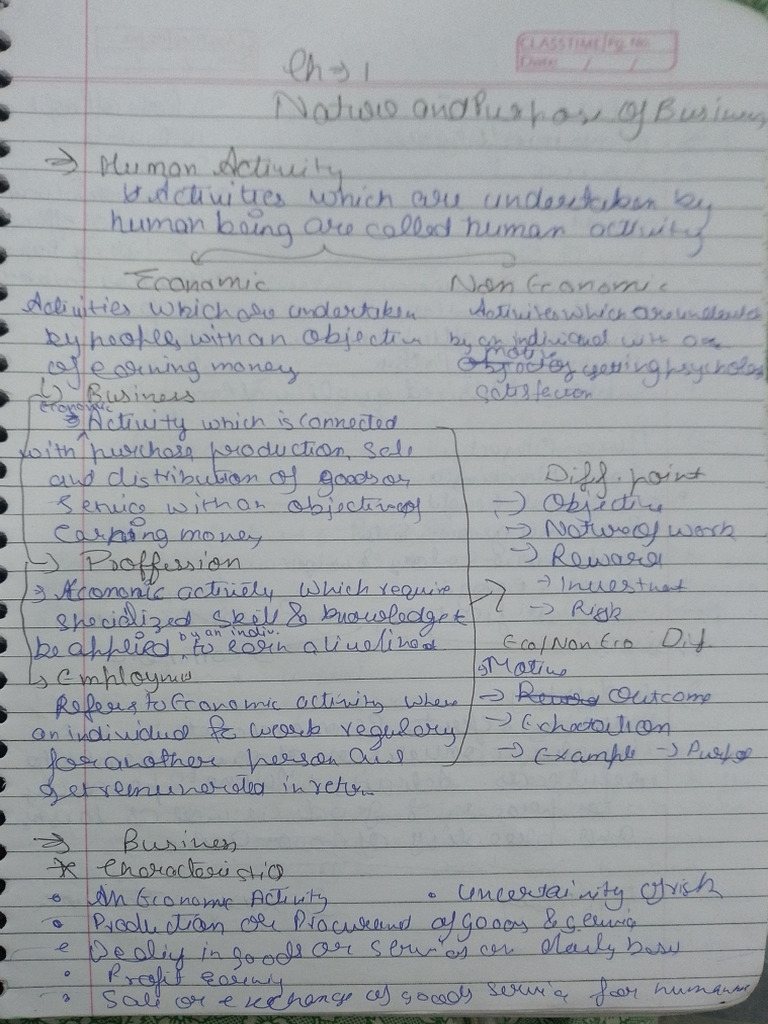 CLASSTIME Pg. No.
Date / /
Ch → 1
Nature and Purpose Of Business
⇒ Human Activity
Activities which are undertaken by
human being are called human activity
Economic
Activities which are undertaken
by peoples with an objective
of earning money
Non Economic
Activities which are undertaken
by an individual with
motive
getting psycholog
satisfection
↳ Business
Economic
Activity which is connected
with purchase, production, sale
and distribution of goods or
service with an objective of
earning money
→ Proffession
→ Economic activiely which require
specialized skill & knowledge t
by an indiv.
be applied to earn a livelihood
↳ Employment
Refers to Economic activity where
an individual work regulary
for another person and
get remunerated in return
Diff. point
→ Objective
→ Nature of work
→ Reward
→ Investment
→ Risk
Eco/Non Eco Dif.
→ Motive
→ Outcome
→ Exhaction
→ Example → Purpo
⇒ Business
* Characteristic
• An Economic Activity
• Uncertainity of risk
• Production or Procurand of goods & servie
• Dealig in goods or services on daily basis
• Profit earnig
• Sale or exchange of goods servie for human